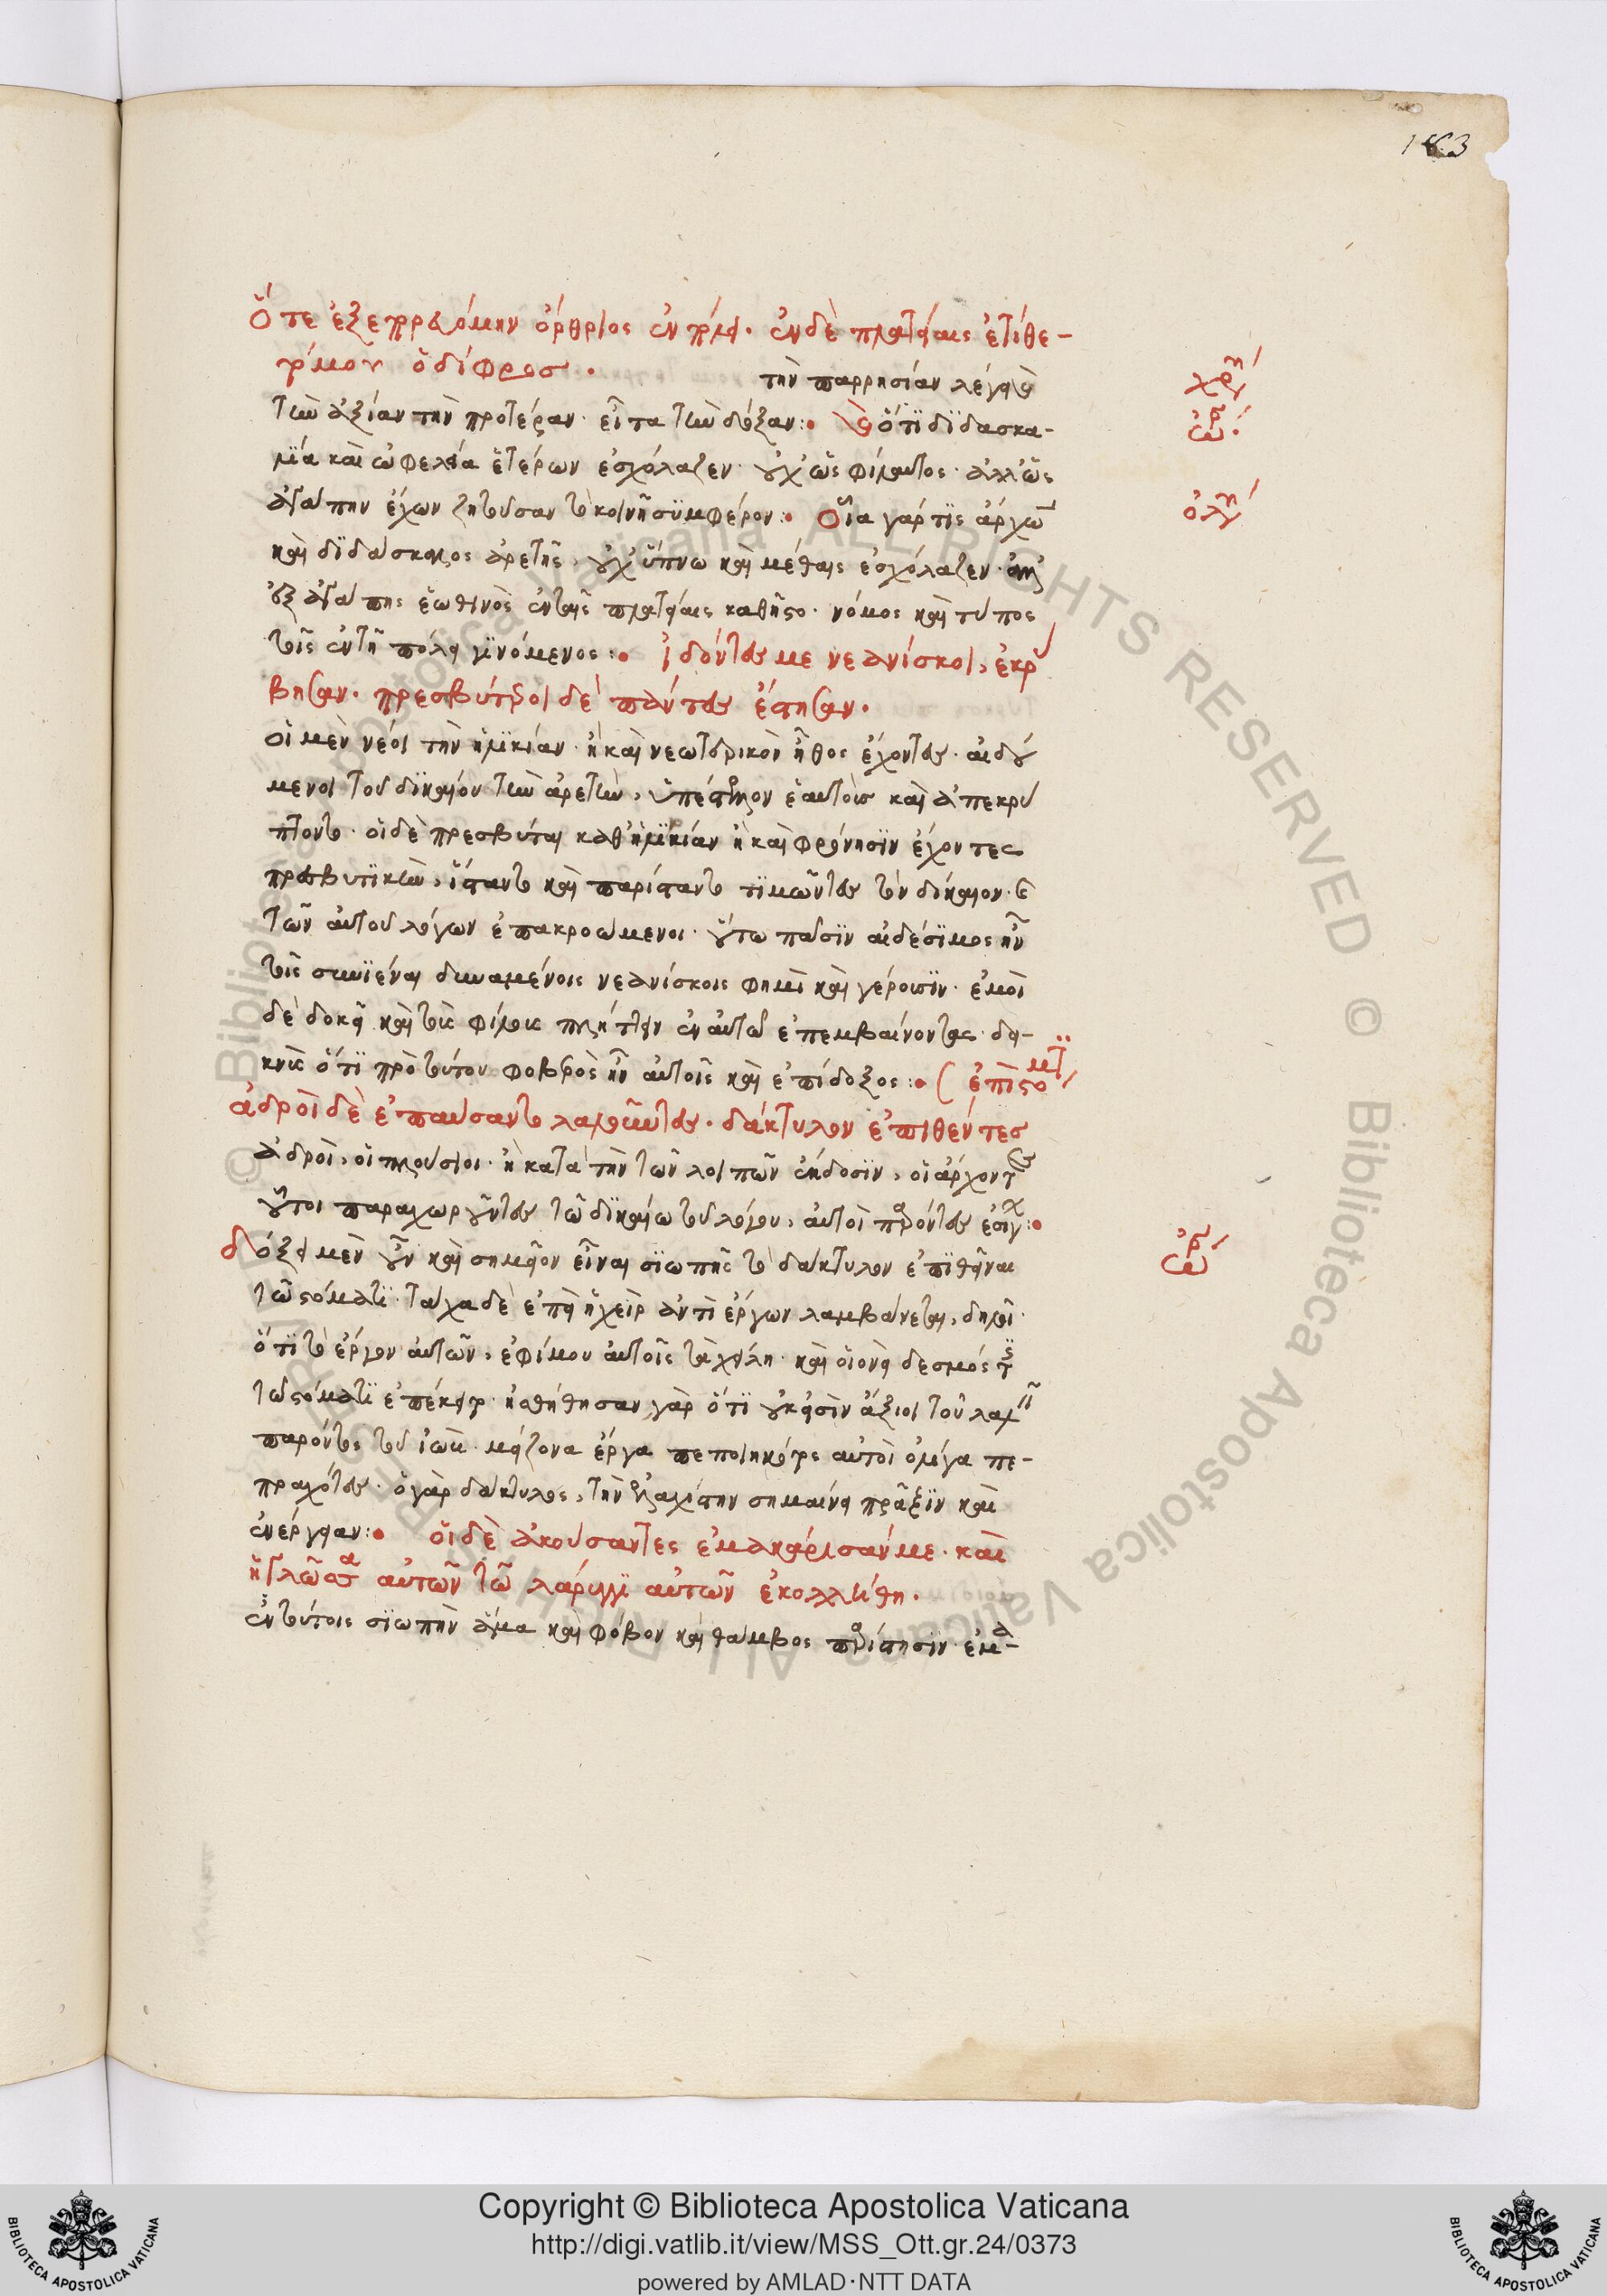 183
Ὅτε ἐξεπορευόμην ὄρθριος ἐν πόλει. ἐν δὲ πλατείαις ἐτίθε-
τό μου ὁ δίφρος.
τὴν παρρησίαν λέγει καὶ
τὴν ἀξίαν τὴν προτέραν. εἶτα τὴν δόξαν: ὅτι διδασκα-
λία καὶ ὠφελεία ἑτέρων ἐσχόλαζεν. οὐχ ὡς φίλαυτος. ἀλλ' ὡς
ἀγάπην ἔχων ζητοῦσαν τὸ κοινῇ συμφέρον: Οἷα γάρ τις ἄρχων
καὶ διδάσκαλος ἀρετῆς, οὐχ ὕπνω καὶ μέθαις ἐσχόλαζεν. ἀλλ'
ἐξ ἀγάπης ἑωθινὸς ἐν ταῖς πλατείαις καθῆστο. νόμος καὶ τύπος
τοῖς ἐν τῇ πόλει γινόμενος: ἰδόντες με νεανίσκοι, ἐκρύ
βησαν. πρεσβύτεροι δὲ πάντες ἔστησαν.
οἱ μὲν νέοι τὴν ἡλικίαν. ἢ καὶ νεωτερικὸν ἦθος ἔχοντες. αἰδού
μενοι τοῦ δικαίου τὴν ἀρετὴν, ὑπέστελλον ἑαυτοὺς καὶ ἀπεκρύ
πτοντο. οἱ δὲ πρεσβύται καθ' ἡλικίαν ἢ καὶ φρόνησιν ἔχοντες
πρεσβυτικὴν, ἵσταντο καὶ παρίσταντο τιμῶντες τὸν δίκαιον. καὶ
τῶν αὐτοῦ λόγων ἐπακροώμενοι. οὕτω πᾶσιν αἰδέσιμος ἦν
τοῖς συνιέναι δυναμένοις νεανίσκοις φημὶ καὶ γέρουσιν. ἐμοὶ
δὲ δοκεῖ καὶ τοὺς φίλους πλήττειν ἐν αὐτῷ ἐπεμβαίνοντας. δει-
κνὺς ὅτι πρὸ τούτου φοβερὸς ἦν αὐτοῖς καὶ ἐπίδοξος: (ἐπὶ στόματι
ἁδροὶ δὲ ἐπαύσαντο λαλοῦντες. δάκτυλον ἐπιθέντες
ἁδροὶ, οἱ πλούσιοι. ἢ κατὰ τὴν τῶν λοιπῶν ἔκδοσιν, οἱ ἄρχοντες
οὗτοι παραχωροῦντες τῷ δικαίω τοῦ λόγου, αὐτοὶ παρόντες ἐσίγων:
Δόξει μὲν οὖν καὶ σημεῖον εἶναι σιωπῆς τὸ δάκτυλον ἐπιθεῖναι
τῷ στόματι. τάχα δὲ ἐπεὶ ἡ χεὶρ ἀντὶ ἔργων λαμβάνεται, δηλοῖ.
ὅτι τὸ ἔργον αὐτῶν, ἐφίμου αὐτοῖς τὰ χείλη. καὶ οἱονεὶ δεσμός τις
τῷ στόματι ἐπέκειτο. ᾐσθήθησαν γὰρ ὅτι οὐκ εἰσὶν ἄξιοι τοῦ λαλεῖν
παρόντος τοῦ ἰὼβ. μείζονα ἔργα πεποιηκότος αὐτοὶ ὀλίγα πε-
πραχότες. ὁ γὰρ δάκτυλος, τὴν ἐλαχίστην σημαίνει πρᾶξιν καὶ
ἐνέργειαν: οἱ δὲ ἀκούσαντες ἐμακάρισάν με. καὶ
ἡ γλῶσσα αὐτῶν τῷ λάρυγγι αὐτῶν ἐκολλήθη.
ἐν τούτοις σιωπὴν ἅμα καὶ φόβον καὶ θάμβος παρίστησιν. ἐμα-
Copyright © Biblioteca Apostolica Vaticana
http://digi.vatlib.it/view/MSS_Ott.gr.24/0373
powered by AMLAD·NTT DATA